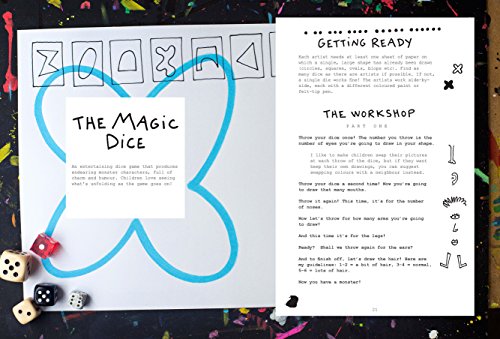 THE MAGIC
DICE
An entertaining dice game that produces
endearing monster characters, full of
charm and humour. Children love seeing
what's unfolding as the game goes on!
GETTING READY
Each artist needs at least one sheet of paper on
which a single, large shape has already been drawn
(circles, squares, ovals, blops etc). Find as
many dice as there are artists if possible. If not,
a single die works fine! The artists work side-by-
side, each with a different coloured paint or
felt-tip pen.
THE WORKSHOP
PART ONE
Throw your dice once! The number you throw is the
number of eyes you're going to draw in your shape.
I like to make children swap their pictures
at each throw of the dice, but if they want
to keep their own drawings, you can suggest
swapping colours with a neighbour instead.
Throw your dice a second time! Now you're going
to draw that many mouths.
Throw it again! This time, it's for the number
of noses.
Now let's throw for how many arms you're going
to draw?
And this time it's for the legs!
Ready? Shall we throw again for the ears?
And to finish off, let's draw the hair! Here are
my guidelines: 1-2 = a bit of hair, 3-4 = normal,
5-6 = lots of hair.
Now you have a monster!